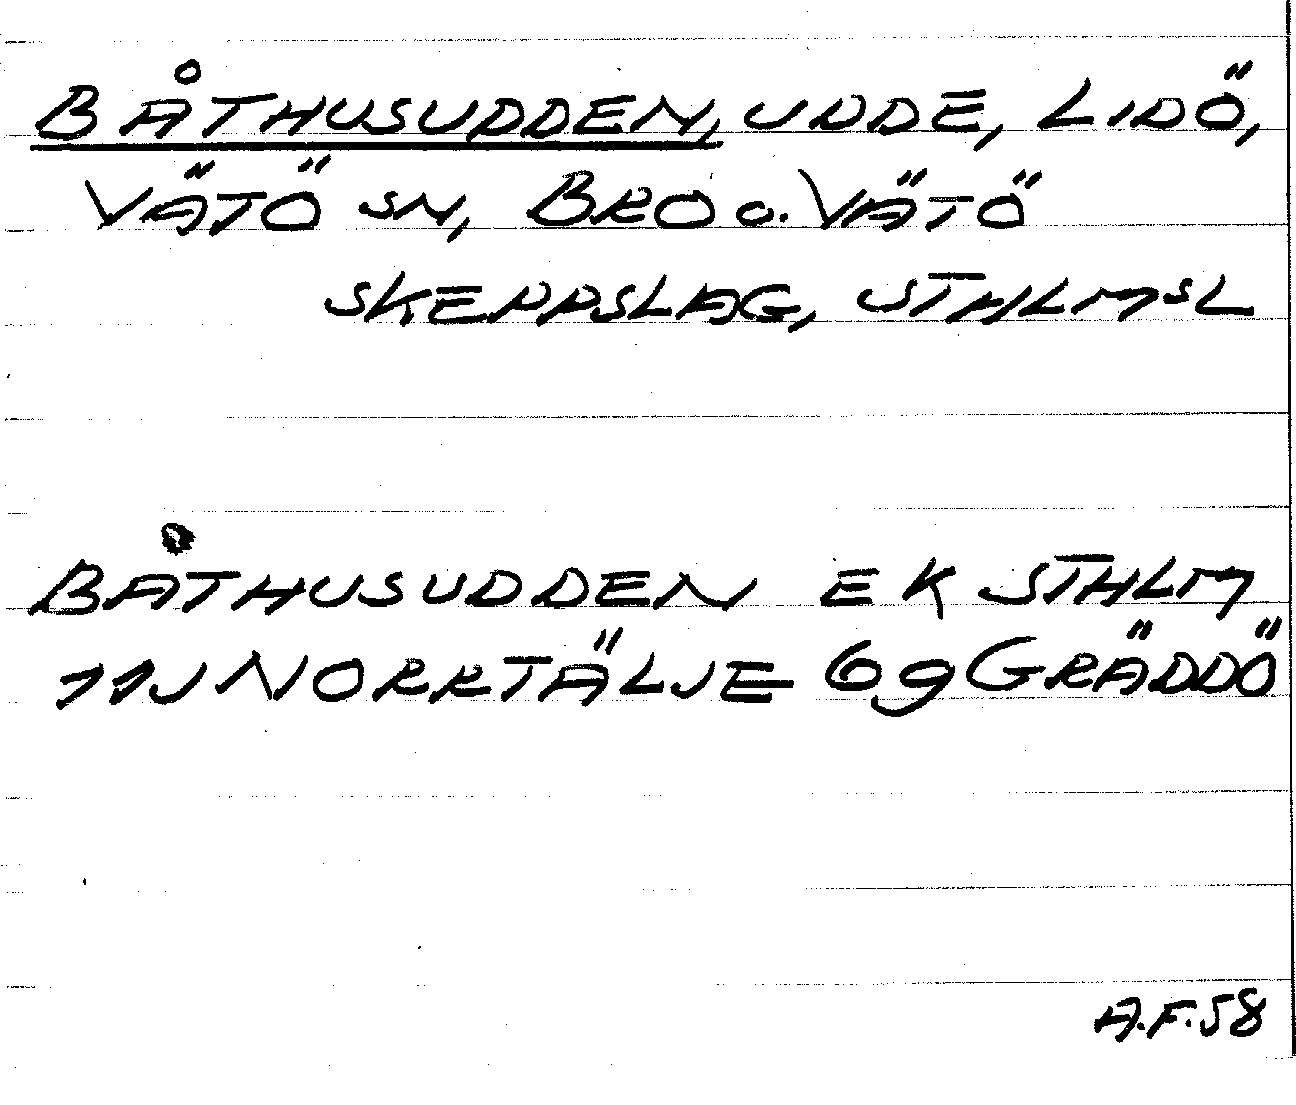 BÅTHUSUDDEN, UDDE, LIDÖ,
VÄTÖ SN, BRO o. VÄTÖ
SKEPPSLAG, STHLMSL
BÅTHUSUDDEN EK STHLM
11J NORRTÄLJE 69 GRÄDDÖ
A.F.58